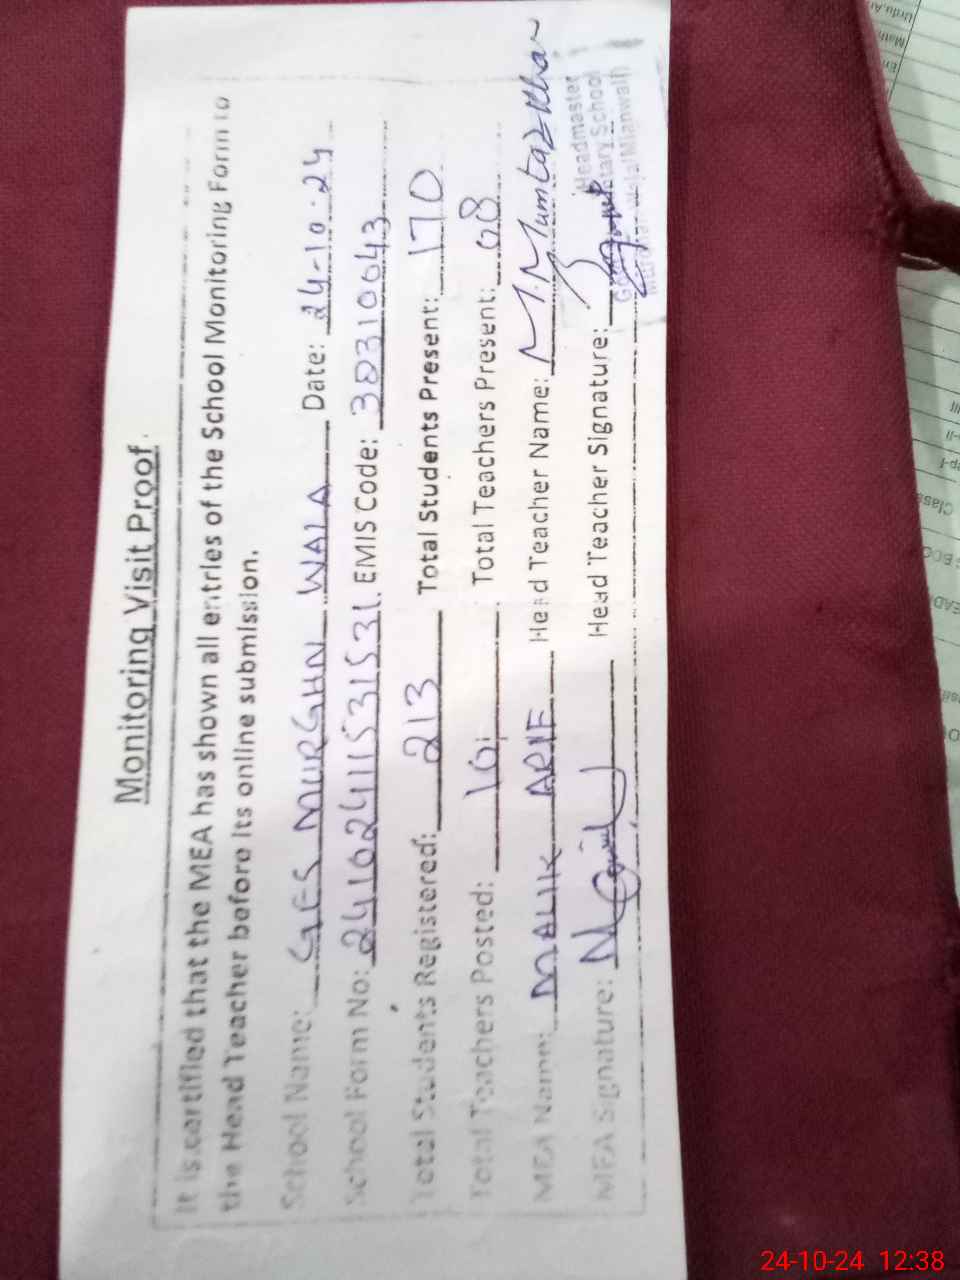 Monitoring Visit Proof
It is certified that the MEA has shown all entries of the School Monitoring Form to
the Head Teacher before its online submission.
School Name: GES MURGHN WALA Date: 24-10-24
School Form No: EMIS Code: 38310043
Total Students Registered: 213 Total Students Present: 170
Total Teachers Posted: 10 Total Teachers Present: 08
MEA Name: MALIK Head Teacher Name: M. Mumtaz Khan
MEA Signature: Head Teacher Signature:
Headmaster
School
Mianwali)
24-10-24 12:38